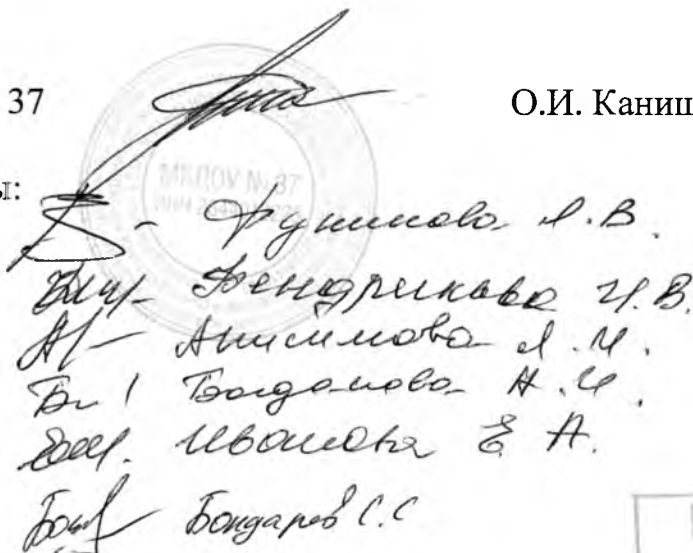 37 О.И. Каниш
МКДОУ № 37
ИНН
ы:
Л.В.
Бендрикова И.В.
Анисимова Л.И.
Богданова Н.И.
Иванова Е А.
Бондарев С.С